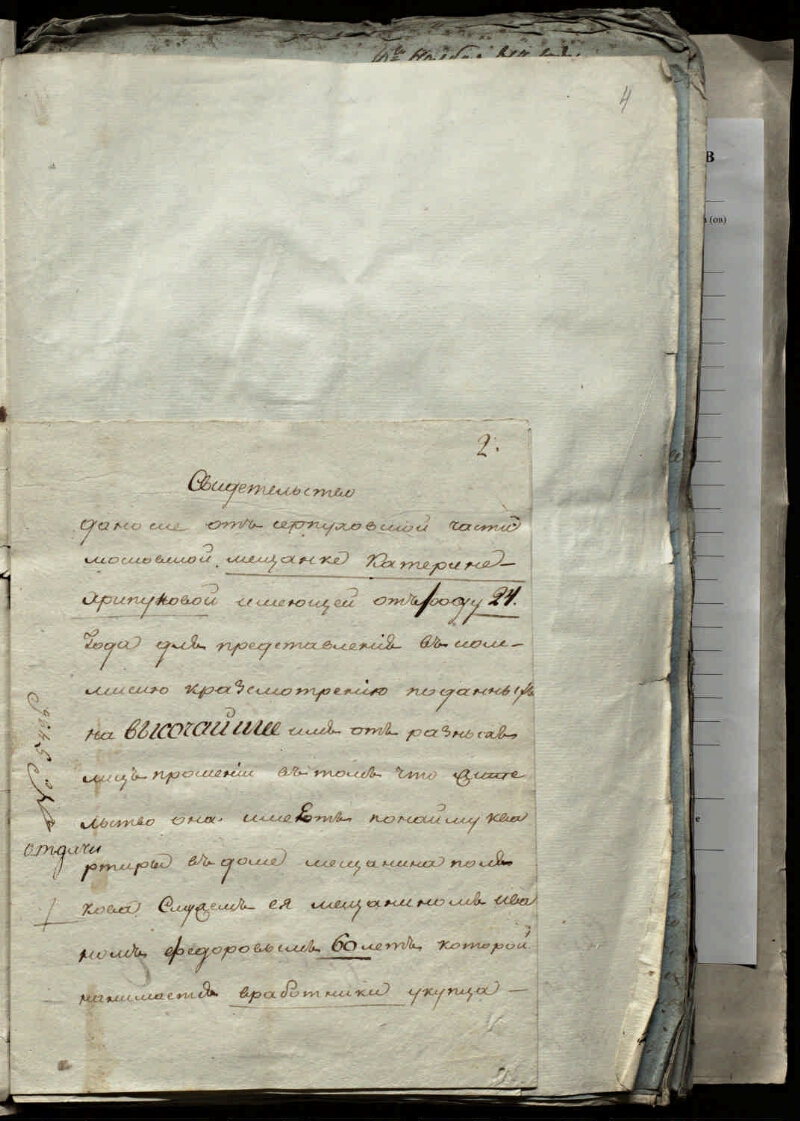 4
2.
Свидетельство
дано сие отъ серпуховской части
московской мещанке Катерине
Арипуковой имеющей отъ роду 24.
Года для представления въ ком-
мисию кразсмотрению поданныхъ
на ВЫСОЧАЙШЕЕ имя отъ разныхъ
лицъ прошении въ томъ что жите
льство она имеетъ понайму ква
ртиры въ доме мещанина поля
кова Сътцемъ ея мещаниномъ ива
номъ федоровымъ 60 летъ которой
нанимается вработники укупца
отдачи
В
(ов)